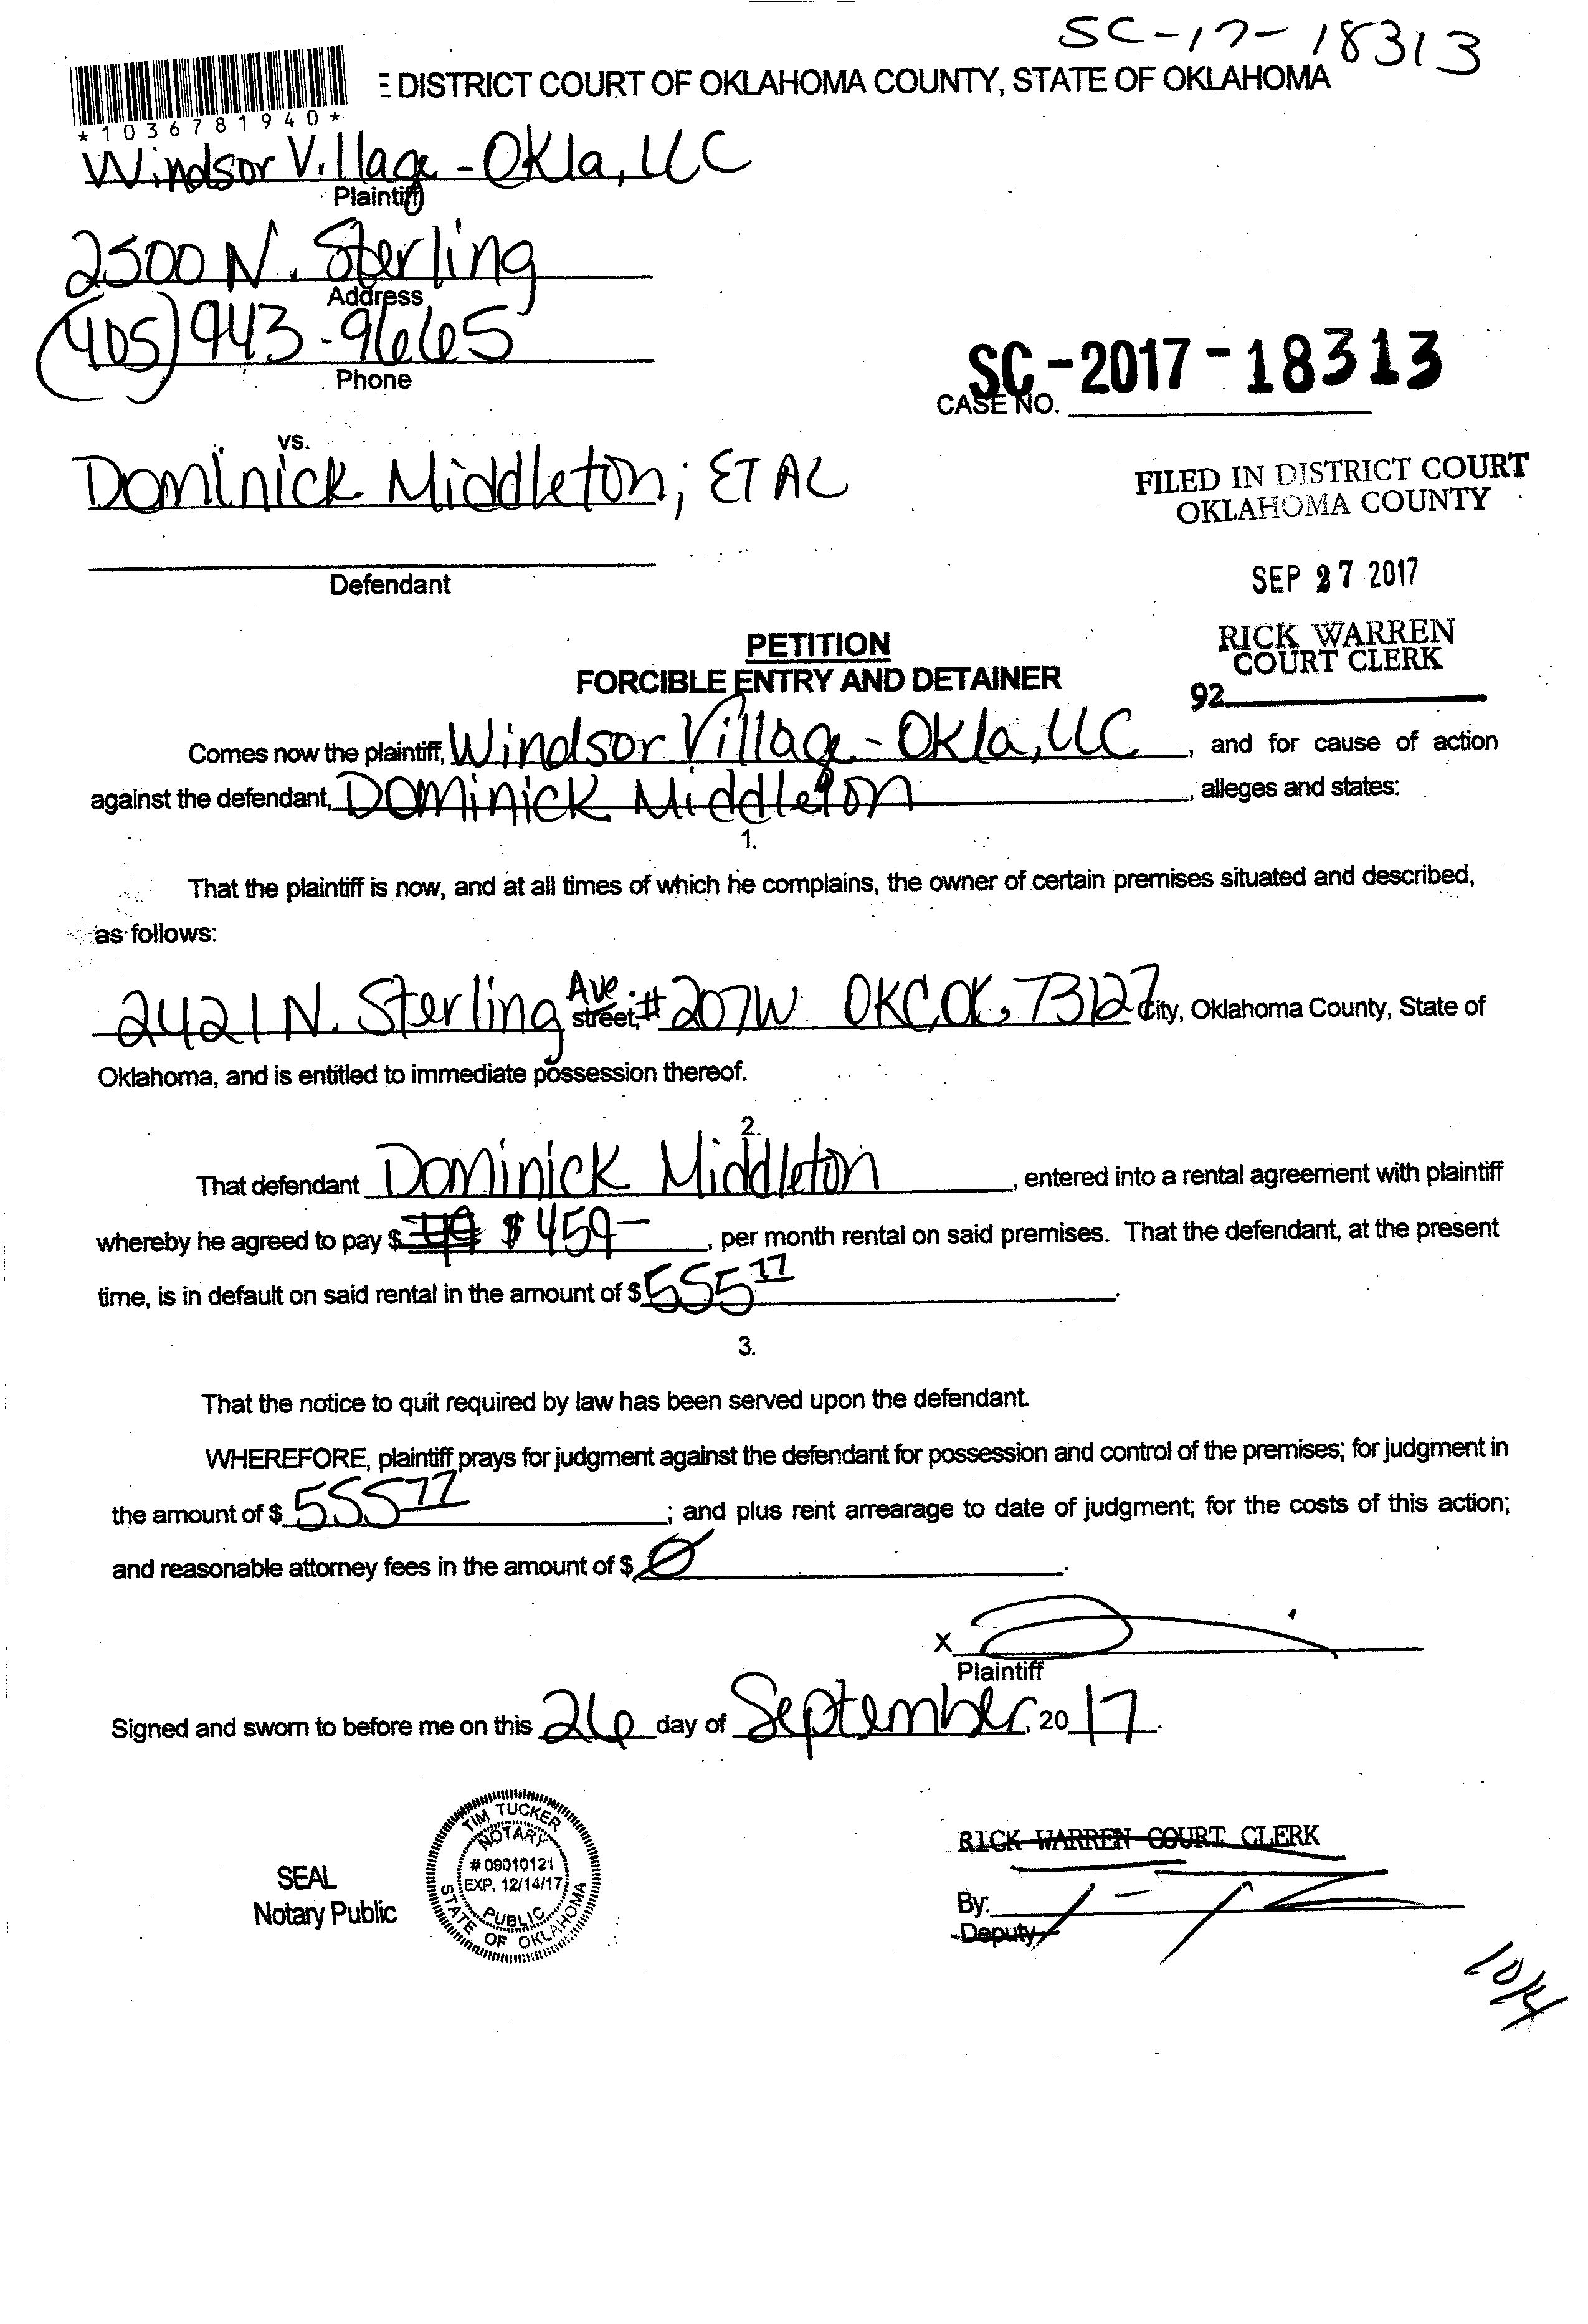 SC-17-18313
E DISTRICT COURT OF OKLAHOMA COUNTY, STATE OF OKLAHOMA
*1036781940*
Windsor Village - Okla, LLC
Plaintiff
2500 N. Sterling
Address
(405) 943-9665
Phone
SC-2017-18313
CASE NO.
vs.
Dominick Middleton; ET AL
FILED IN DISTRICT COURT
OKLAHOMA COUNTY
Defendant
SEP 27 2017
PETITION
RICK WARREN
COURT CLERK
FORCIBLE ENTRY AND DETAINER
92
Comes now the plaintiff, Windsor Village - Okla, LLC, and for cause of action
against the defendant, Dominick Middleton, alleges and states:
1.
That the plaintiff is now, and at all times of which he complains, the owner of certain premises situated and described,
as follows:
2421 N. Sterling Ave. street, #207W OKC, OK, 73127 City, Oklahoma County, State of
Oklahoma, and is entitled to immediate possession thereof.
2.
That defendant Dominick Middleton, entered into a rental agreement with plaintiff
whereby he agreed to pay $ $459-, per month rental on said premises. That the defendant, at the present
time, is in default on said rental in the amount of $555 77.
3.
That the notice to quit required by law has been served upon the defendant.
WHEREFORE, plaintiff prays for judgment against the defendant for possession and control of the premises; for judgment in
the amount of $ 555 77; and plus rent arrearage to date of judgment; for the costs of this action;
and reasonable attorney fees in the amount of $ Ø.
X
Plaintiff
Signed and sworn to before me on this 26 day of September, 20 17.
TIM TUCKER
NOTARY
# 09010121
EXP. 12/14/17
PUBLIC
STATE OF OKLAHOMA
SEAL
Notary Public
RICK WARREN COURT CLERK
By:
Deputy
10/4